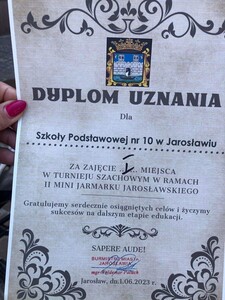 DYPLOM UZNANIA
Dla
Szkoły Podstawowej nr 10 w Jarosławiu
ZA ZAJĘCIE I MIEJSCA
W TURNIEJU SZACHOWYM W RAMACH
II MINI JARMARKU JAROSŁAWSKIEGO
Gratulujemy serdecznie osiągniętych celów i życzymy
sukcesów na dalszym etapie edukacji.
SAPERE AUDE!
BURMISTRZ MIASTA
JAROSŁAWIA
Jarosław, dn.1.06.2023 r.